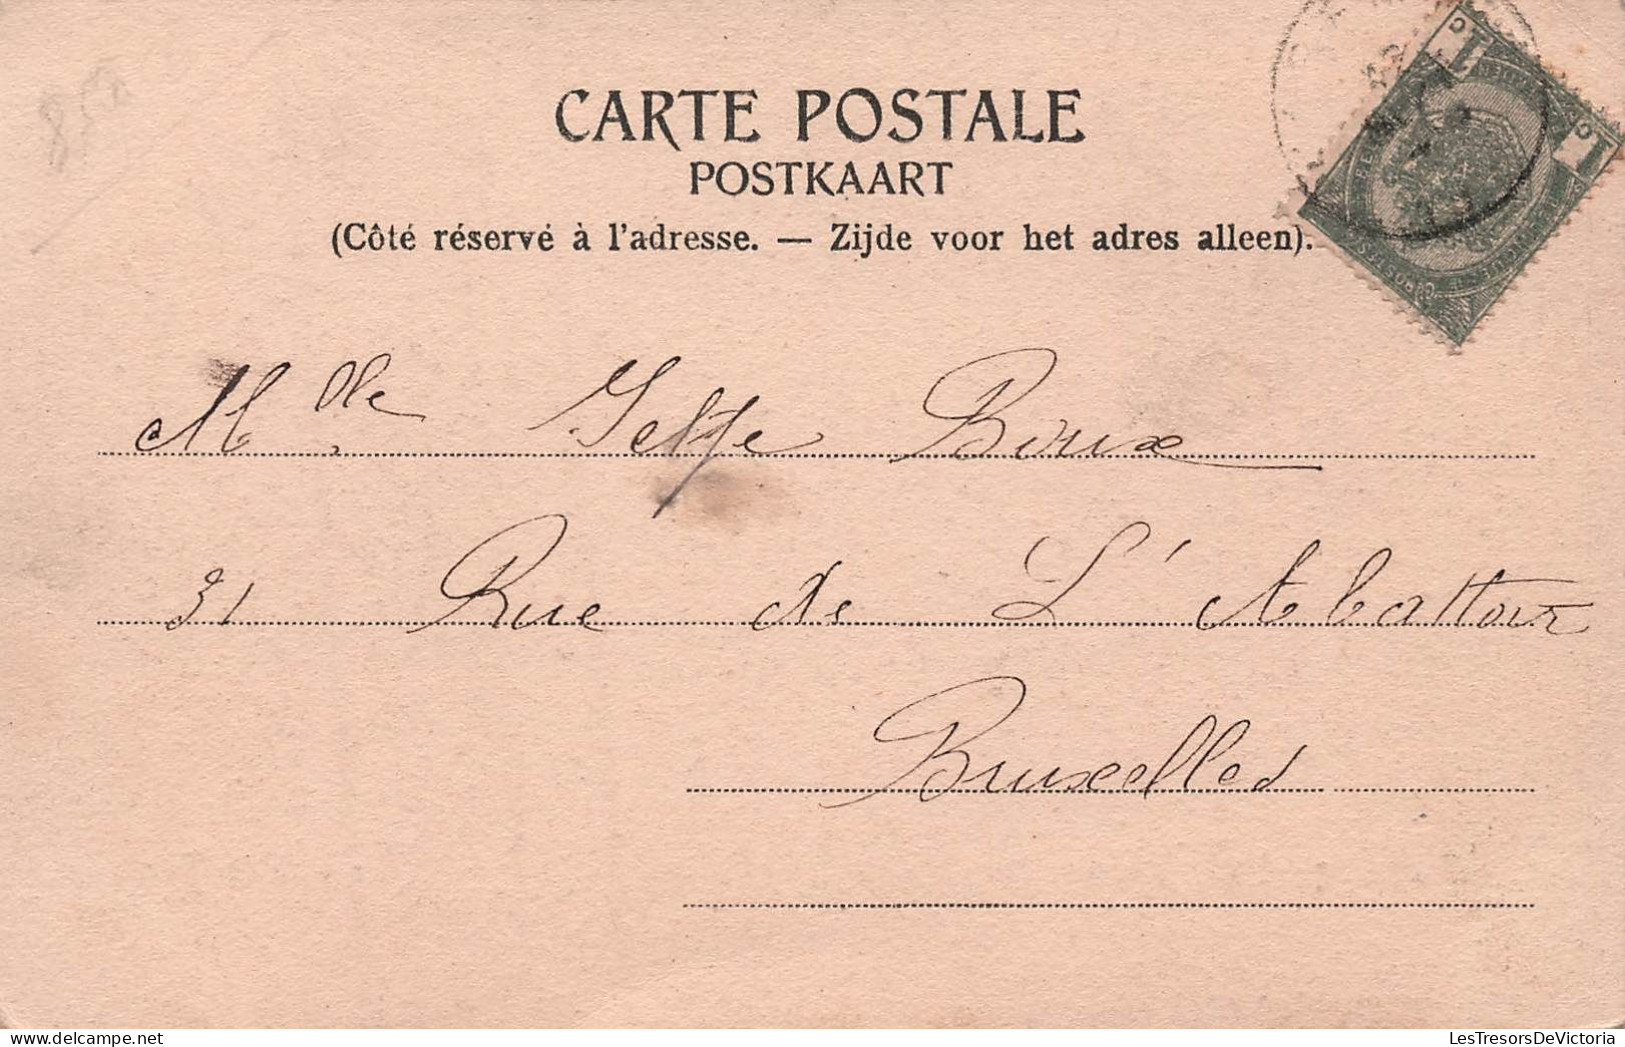 85
CARTE POSTALE
POSTKAART
(Côté réservé à l'adresse. — Zijde voor het adres alleen).
Mlle Roux
31 Rue de L'Abattoir
Bruxelles
LesTresorsDeVictoria